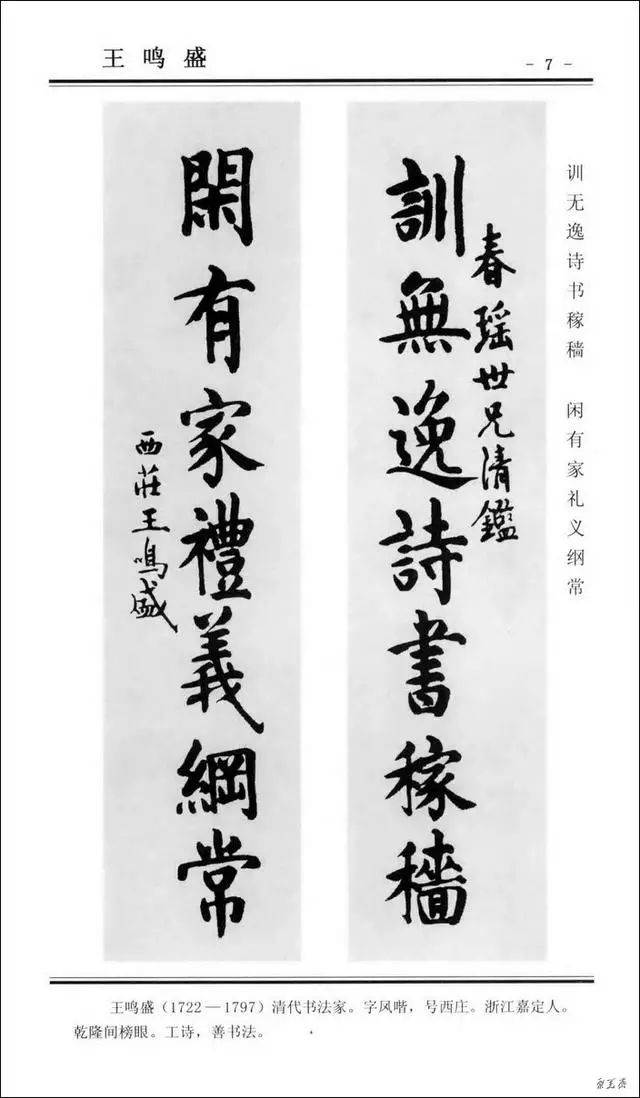 王鸣盛
- 7 -
训无逸诗书稼穑 闲有家礼义纲常
春瑶世兄清鑑
訓無逸詩書稼穑
閑有家禮義綱常
西莊王鳴盛
王鸣盛（1722—1797）清代书法家。字风喈，号西庄。浙江嘉定人。
乾隆间榜眼。工诗，善书法。